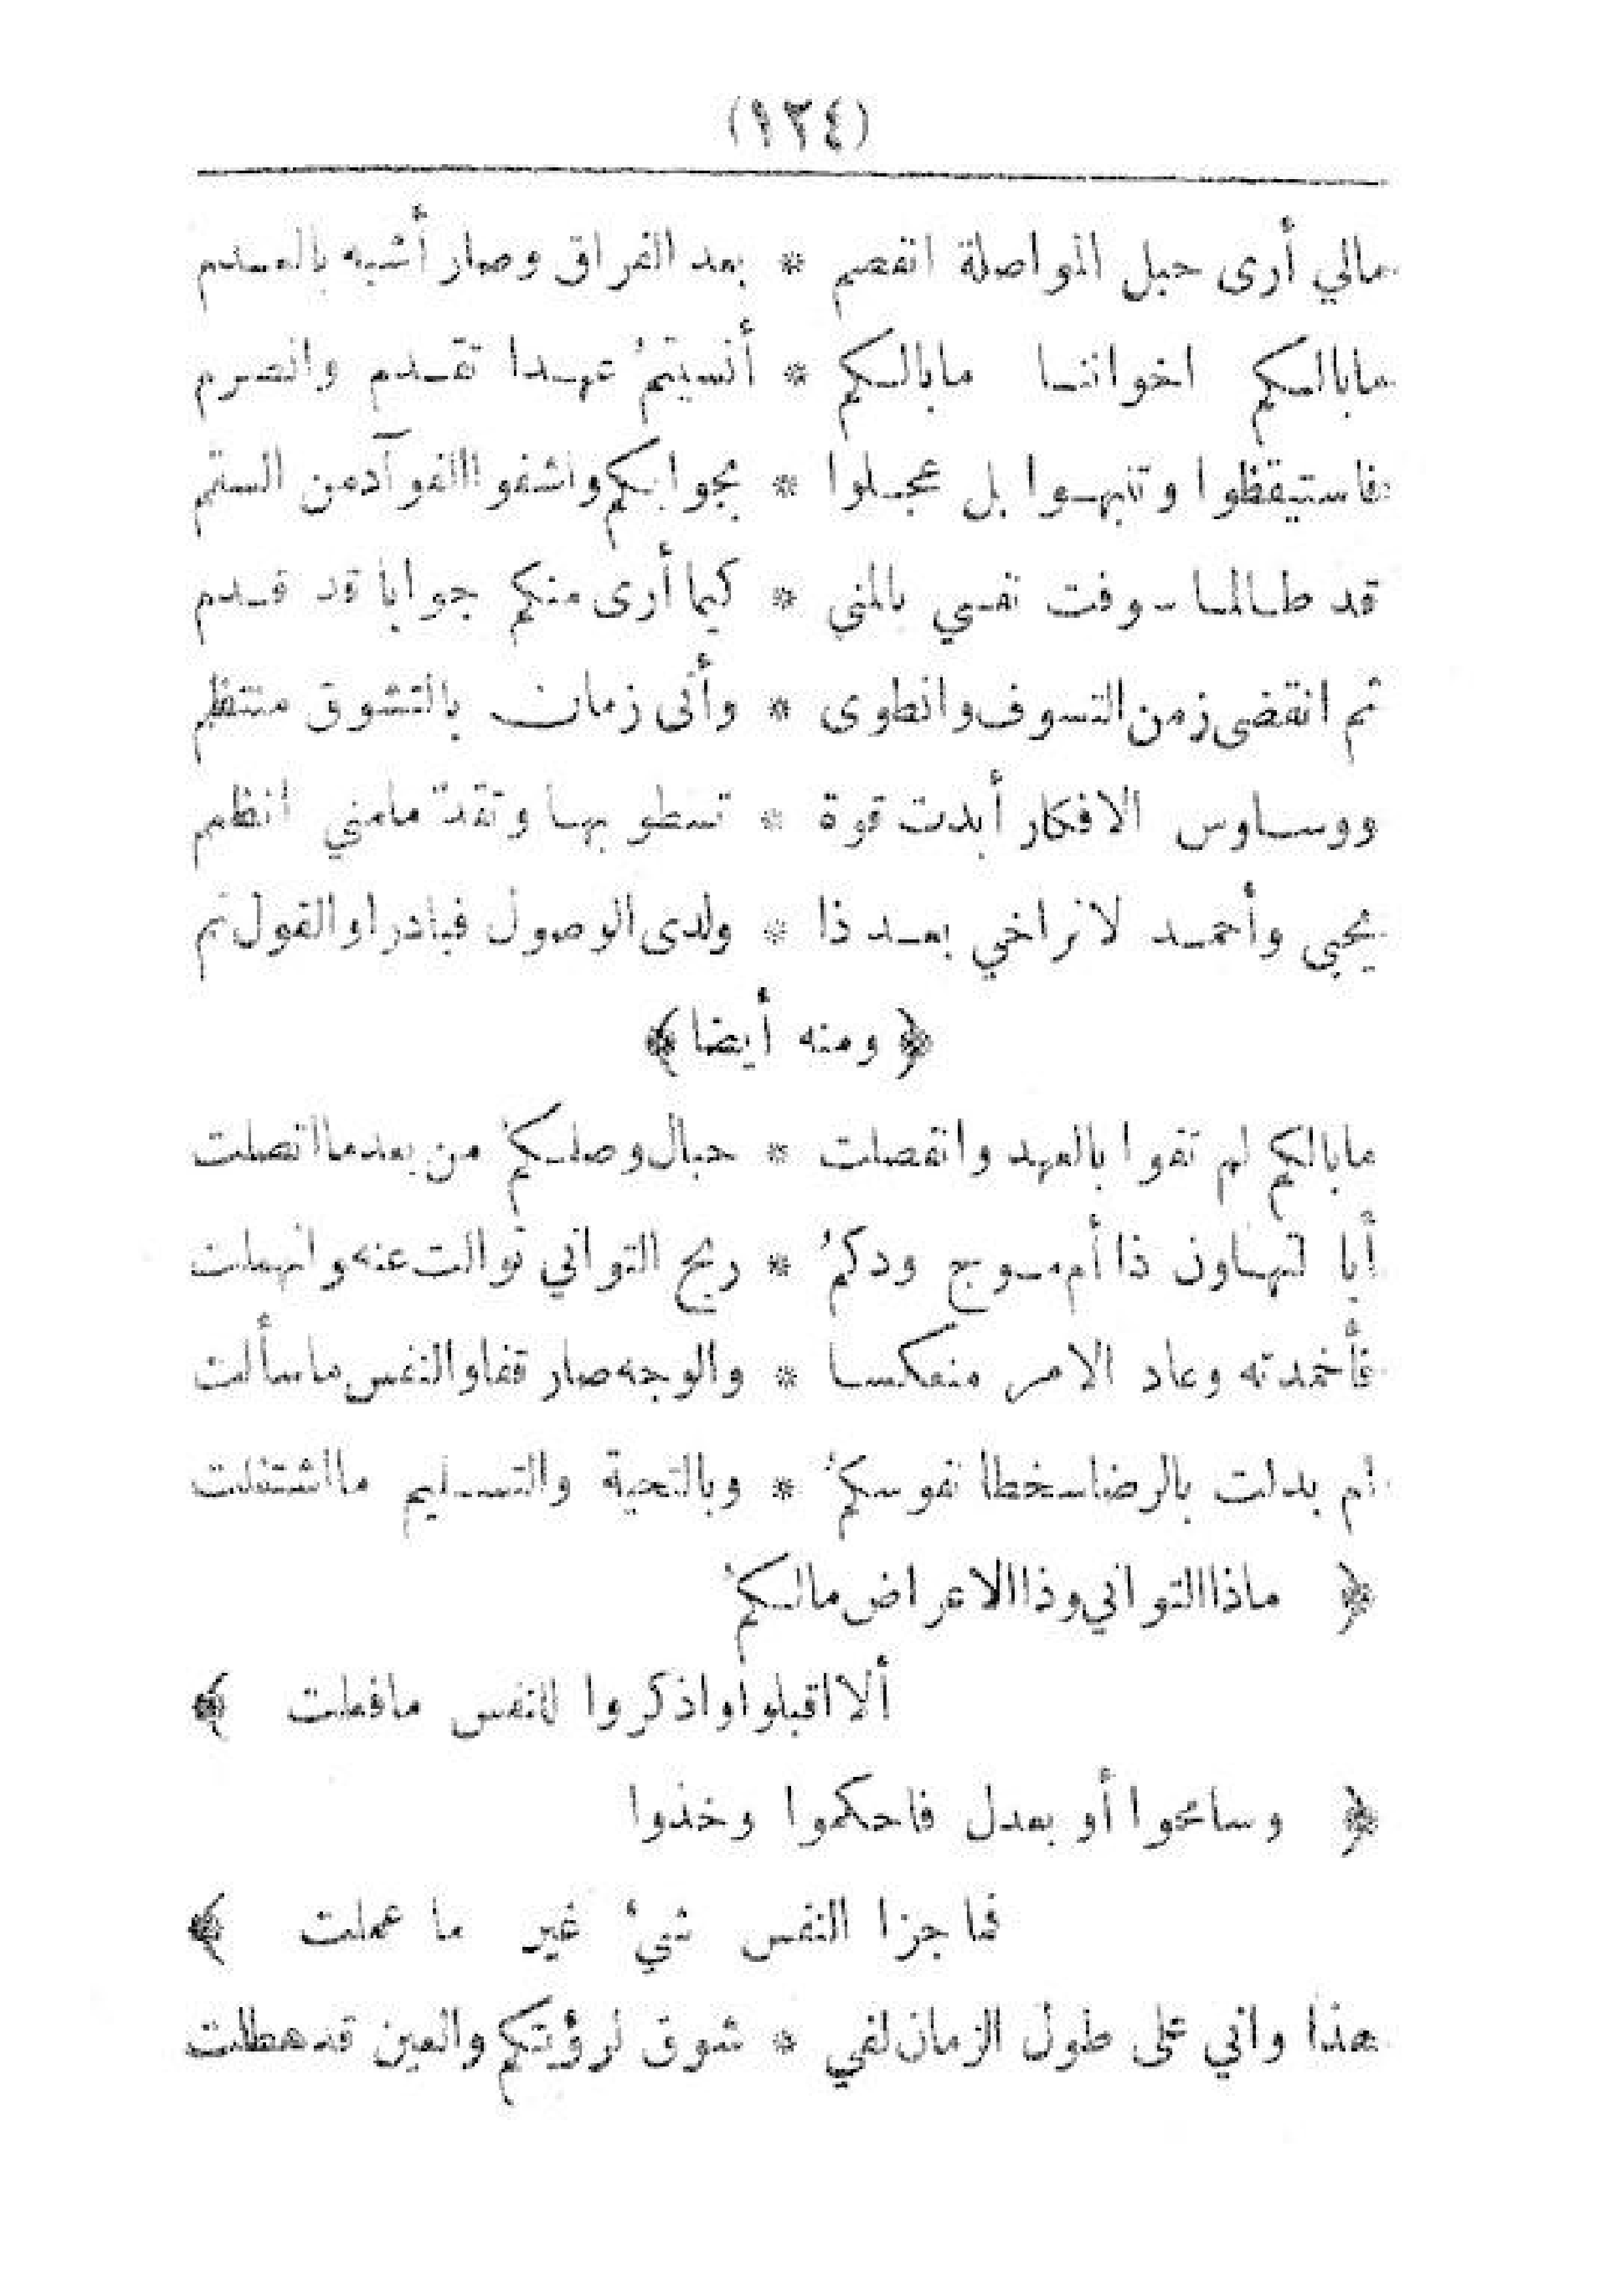 (١٣٤)
مالي أرى حبل المواصلة انفصم * بعد الفراق وصار أشبه بالعدم
مابالكم اخواننا مابالكم * أنسيتمُ عهدا تقدم وانصرم
فاستيقظوا وتنبهوا بل عجلوا * بجوابكم واشفوا الفوآد من السقم
قد طالما سوفت نفسي بالمنى * كيما أرى منكم جوابا قد قدم
ثم انقضى زمن التسوف وانطوى * وأتى زمان بالتشوق منتظم
ووساوس الافكار أبدت قوة * تسطو بها وتقدّ مامني انظم
يحيى وأحمد لاتراخي بعد ذا * ولدى الوصول فبادرا والقول تم
﴿ ومنه أيضا ﴾
مابالكم لم تفوا بالعهد وانفصلت * حبال وصلكمُ من بعدما اتصلت
أيا لتهاون ذا أم موج ودكمُ * ريح التواني توالت عنه وانهملت
فأخمدته وعاد الامر منعكسا * والوجه صار قفا والنفس ماسألت
ام بدلت بالرضا سخطا نفوسكمُ * وبالتحية والتسليم ما اشتغلت
﴿ ماذا التواني وذا الاعراض مالكمُ
ألا اقبلوا واذكروا للنفس مافعلت ﴾
﴿ وسامحوا أو بعدل فاحكموا وخذوا
فما جزا النفس شيءٌ غير ما عملت ﴾
هذا واني على طول الزمان لفي * شوق لرؤتكم والعين قد هطلت